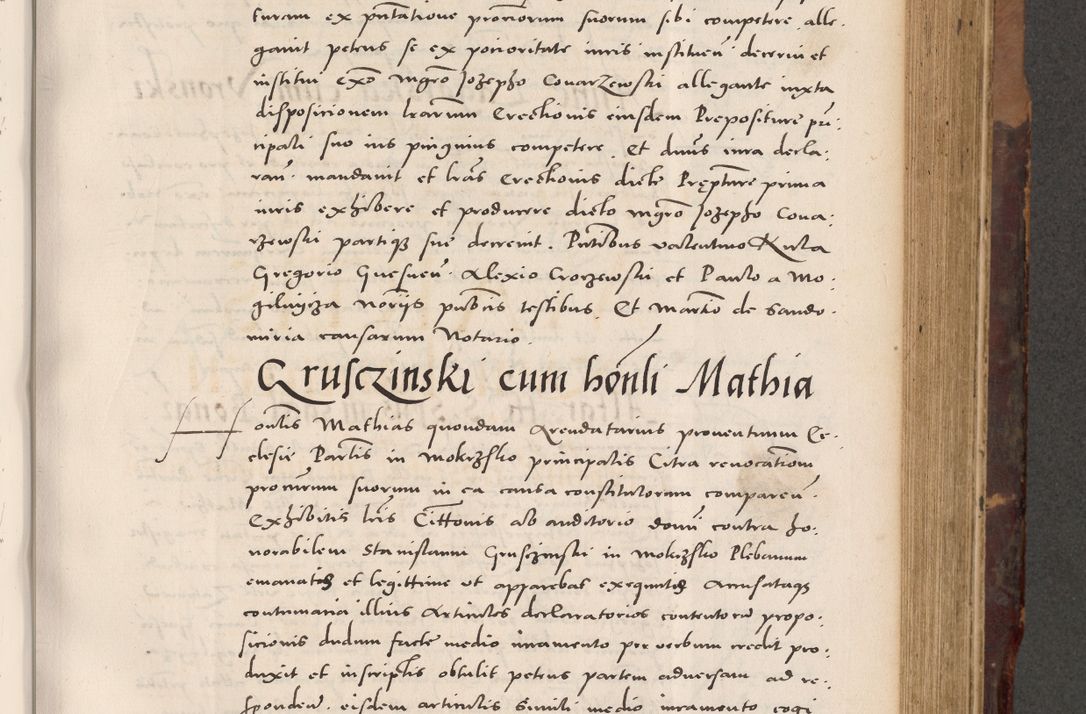 turam ex pñtatione prorsorum suorum sibi competere alle-
gavit petens se ex porioritate iuris instituen̄ decerni et
institui exõ mgrõ Jozepho Covarzewski allegante iuxta
disposicionem lrarum Erectionis eiusdem Prepositure pri-
cipali suo ius pinguius competere. Et dnus iura decla-
ran̄ mandavit et lras Erectionis dicte Prepture prima
iuris exhibere et producere dicto mgrõ Jozepho Cova-
rzewski partiqz sue decrevit. Pñtibus valentino Kula
Gregorio Alexio Croczewski et Paulo a Mo-
gilnycza Norijs publicis testibus. Et Martino de Sando-
miria causarum Notario.
Grusczinski cum honli Mathia
Honlis Mathias quondam Arendatarius proventuum Ec-
clesie Parlis in Mokrzsko principalis Citra revocationem
procurum suorum in ea causa constitutorum comparen̄
Exhibitis lris Cittonis ab auditorio domi contra ho-
norabilem Stanislaum Gruszinski in Mokrzsko Plebanum
emanatis et legittime ut apparebat exequutis Accusataqz
contumacia illius Articulos declaratorios contentorum propo-
sicionis dudum facte medio iuramento per verbum credit pro-
duxit et inscriptis obtulit petens partem adversam ad re-
sponden̄ eisdem articulis simili medio iuramento cogi